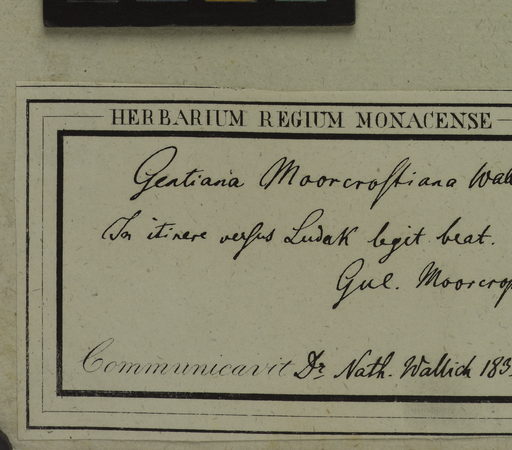 HERBARIUM REGIUM MONACENSE
Gentiana Moorcroftiana Wall
In itinere versus Ludak legit beat.
Gul. Moorcrof
Communicavit Dr. Nath. Wallich 183